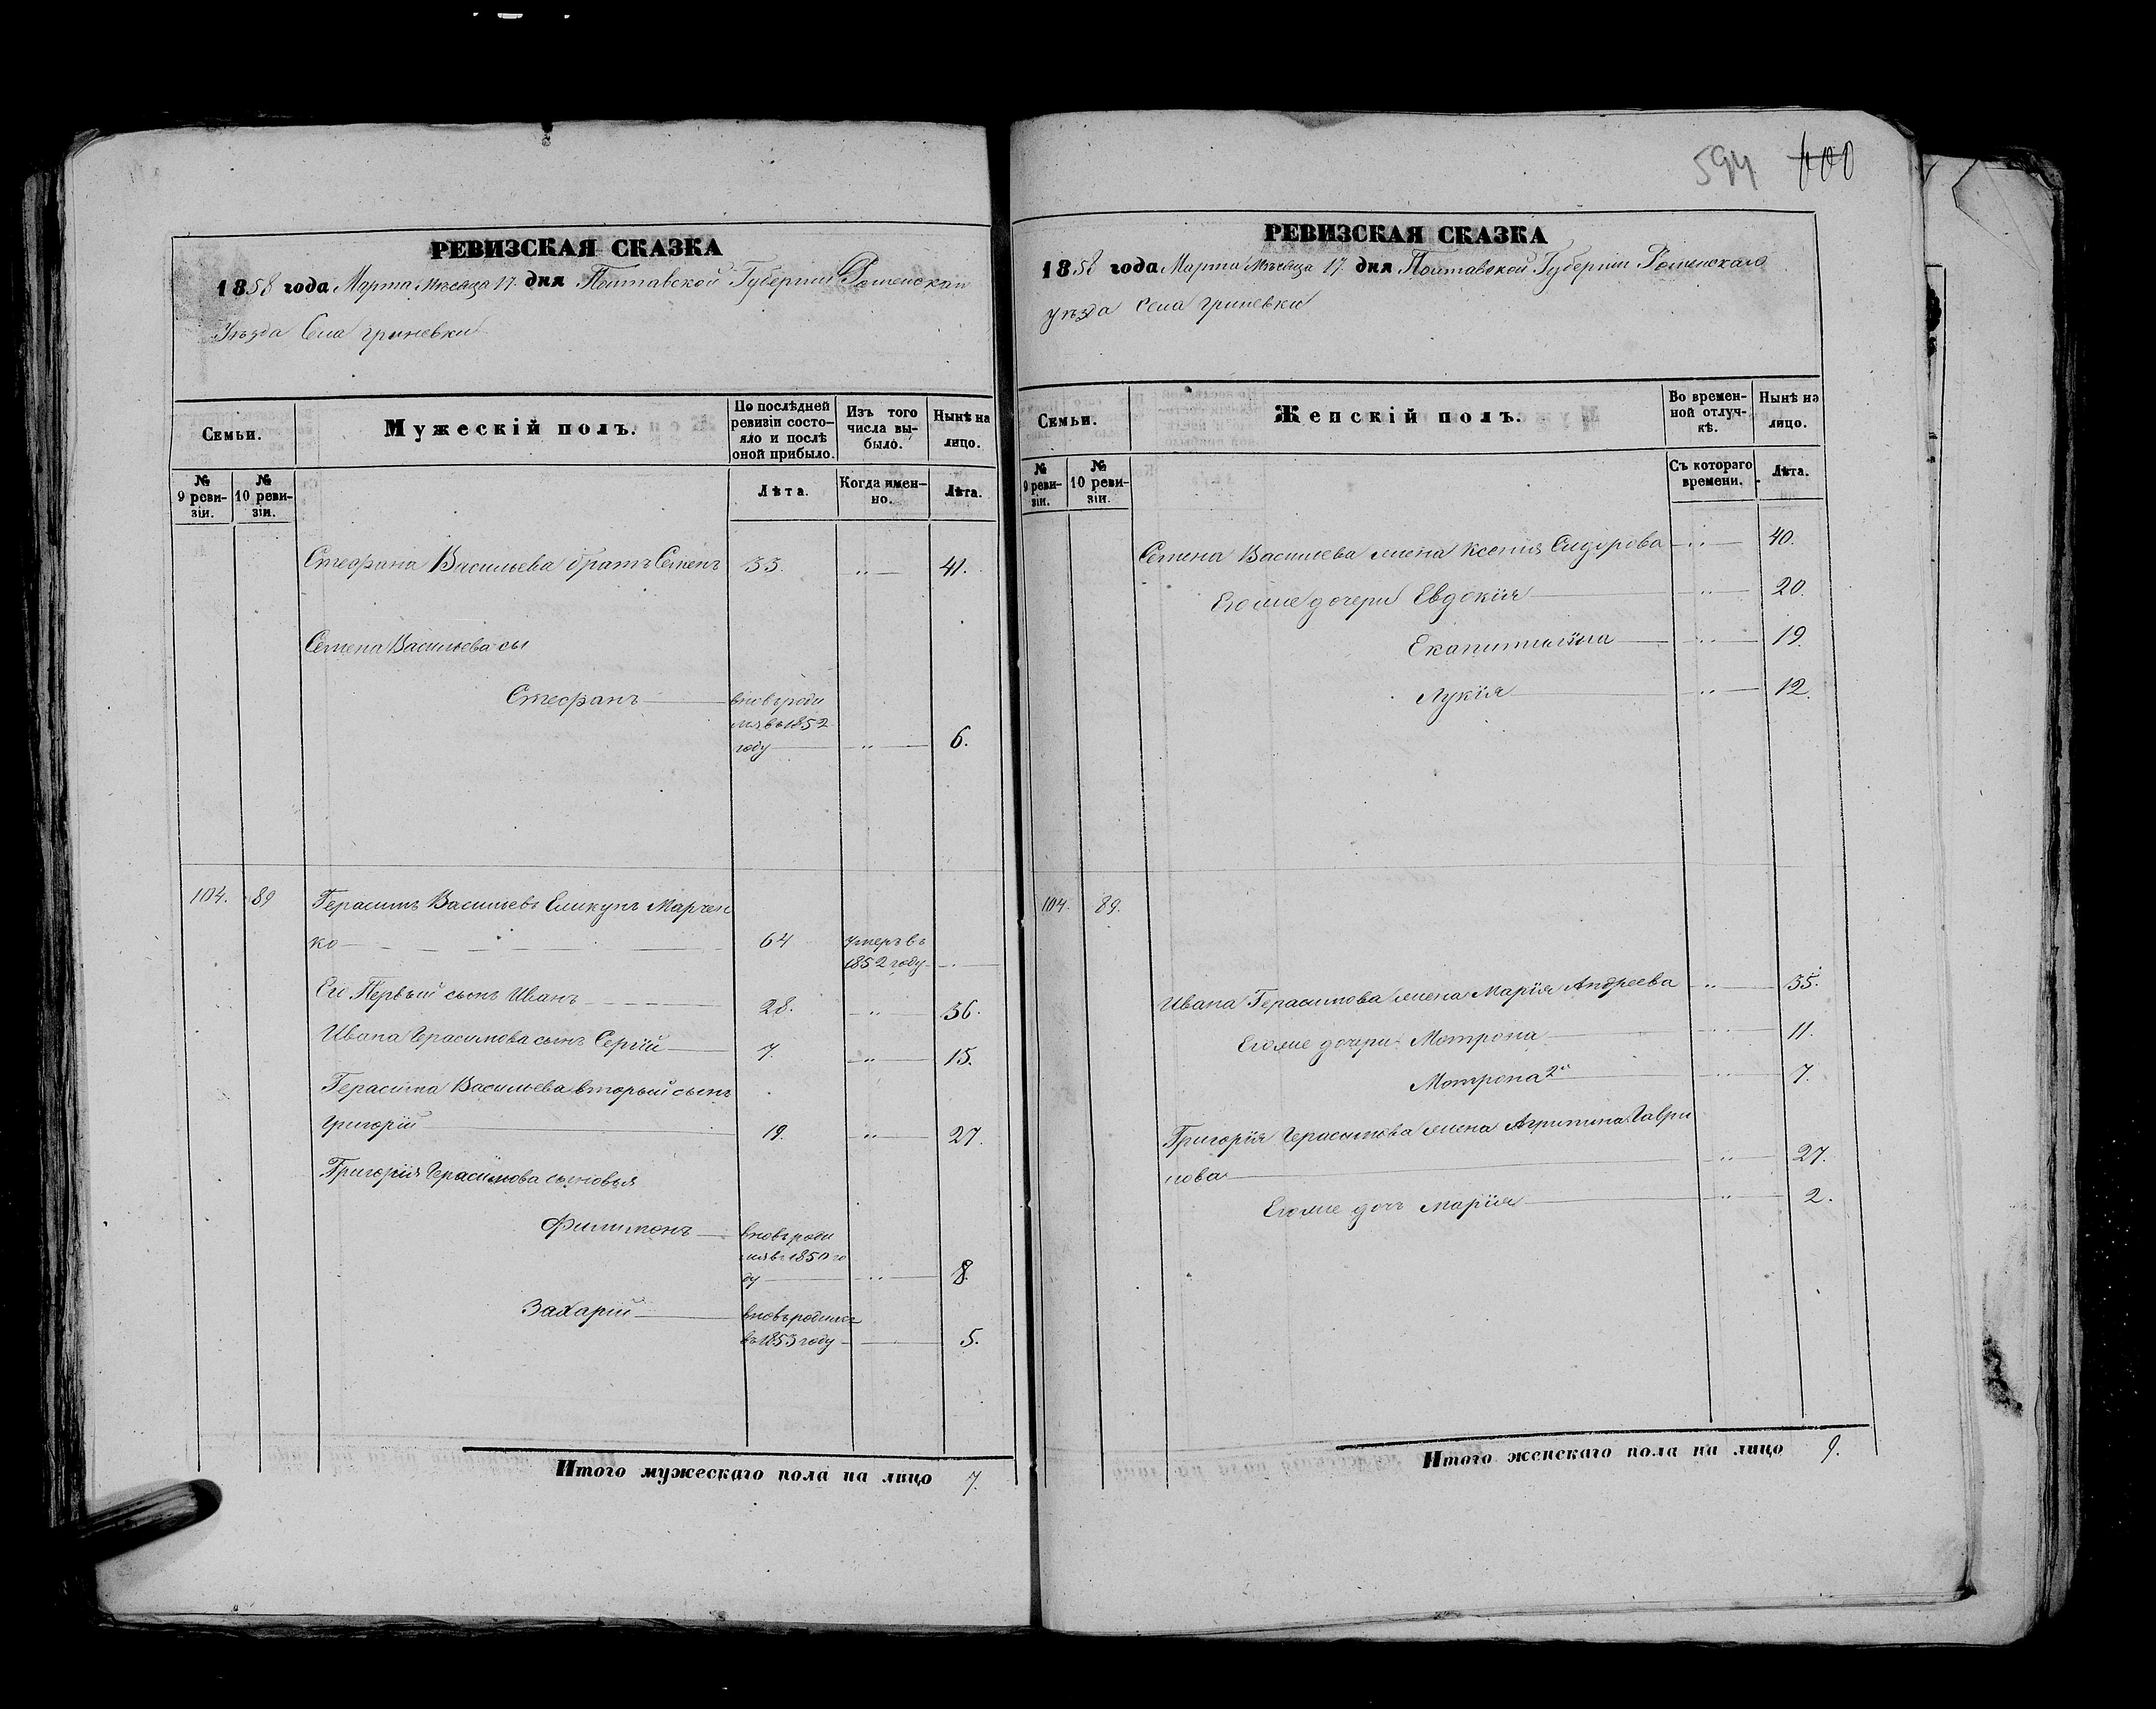 594 600
РЕВИЗСКАЯ СКАЗКА
1858 года Марта Мѣсяца 17. дня Полтавской Губерніи Роменскаго
Уѣзда Села Гриневки
Семьи.
Мужескій полъ.
По послѣдней ревизіи состояло и послѣ оной прибыло.
Изъ того числа выбыло.
Нынѣ на лицо.
№ 9 ревизіи.
№ 10 ревизіи.
Лѣта.
Когда именно.
Лѣта.
Стефана Васильева братъ Семенъ 33. 41.
Семена Васильева сы
Стефанъ вновь роди
лся въ 1852
году 6.
104. 89 Герасимъ Васильевъ Марчен
ко 64 умеръ въ
1852 году
Его Первый сынъ Иванъ 28. 36.
Ивана Герасимова сынъ Сергій 7. 15.
Герасима Васильева вторый сынъ
Григорій 19. 27.
Григорія Герасимова сыновья
Филимонъ вновь роди
лся въ 1850 го
ду 8.
Захарій вновь родился
въ 1853 году 5.
Итого мужескаго пола на лицо 7.
РЕВИЗСКАЯ СКАЗКА
1858 года Марта Мѣсяца 17. дня Полтавской Губерніи Роменскаго
уѣзда Села Гриневки
Семьи.
Женскій полъ.
Во временной отлучкѣ.
Нынѣ на лицо.
№ 9 ревизіи.
№ 10 ревизіи.
Съ котораго времени.
Лѣта.
Семена Васильева жена Ксенія Сидорова 40.
Его же дочери Евдокія 20.
Екапитилина 19.
Лукія 12.
104. 89.
Ивана Герасимова жена Марія Андреева 35.
Его же дочери Мотрона 11.
Мотрона 2я 7.
Григорія Герасимова жена Агрипина Гаври
лова 27.
Его же дочь Марія 2.
Итого женскаго пола на лицо 9.